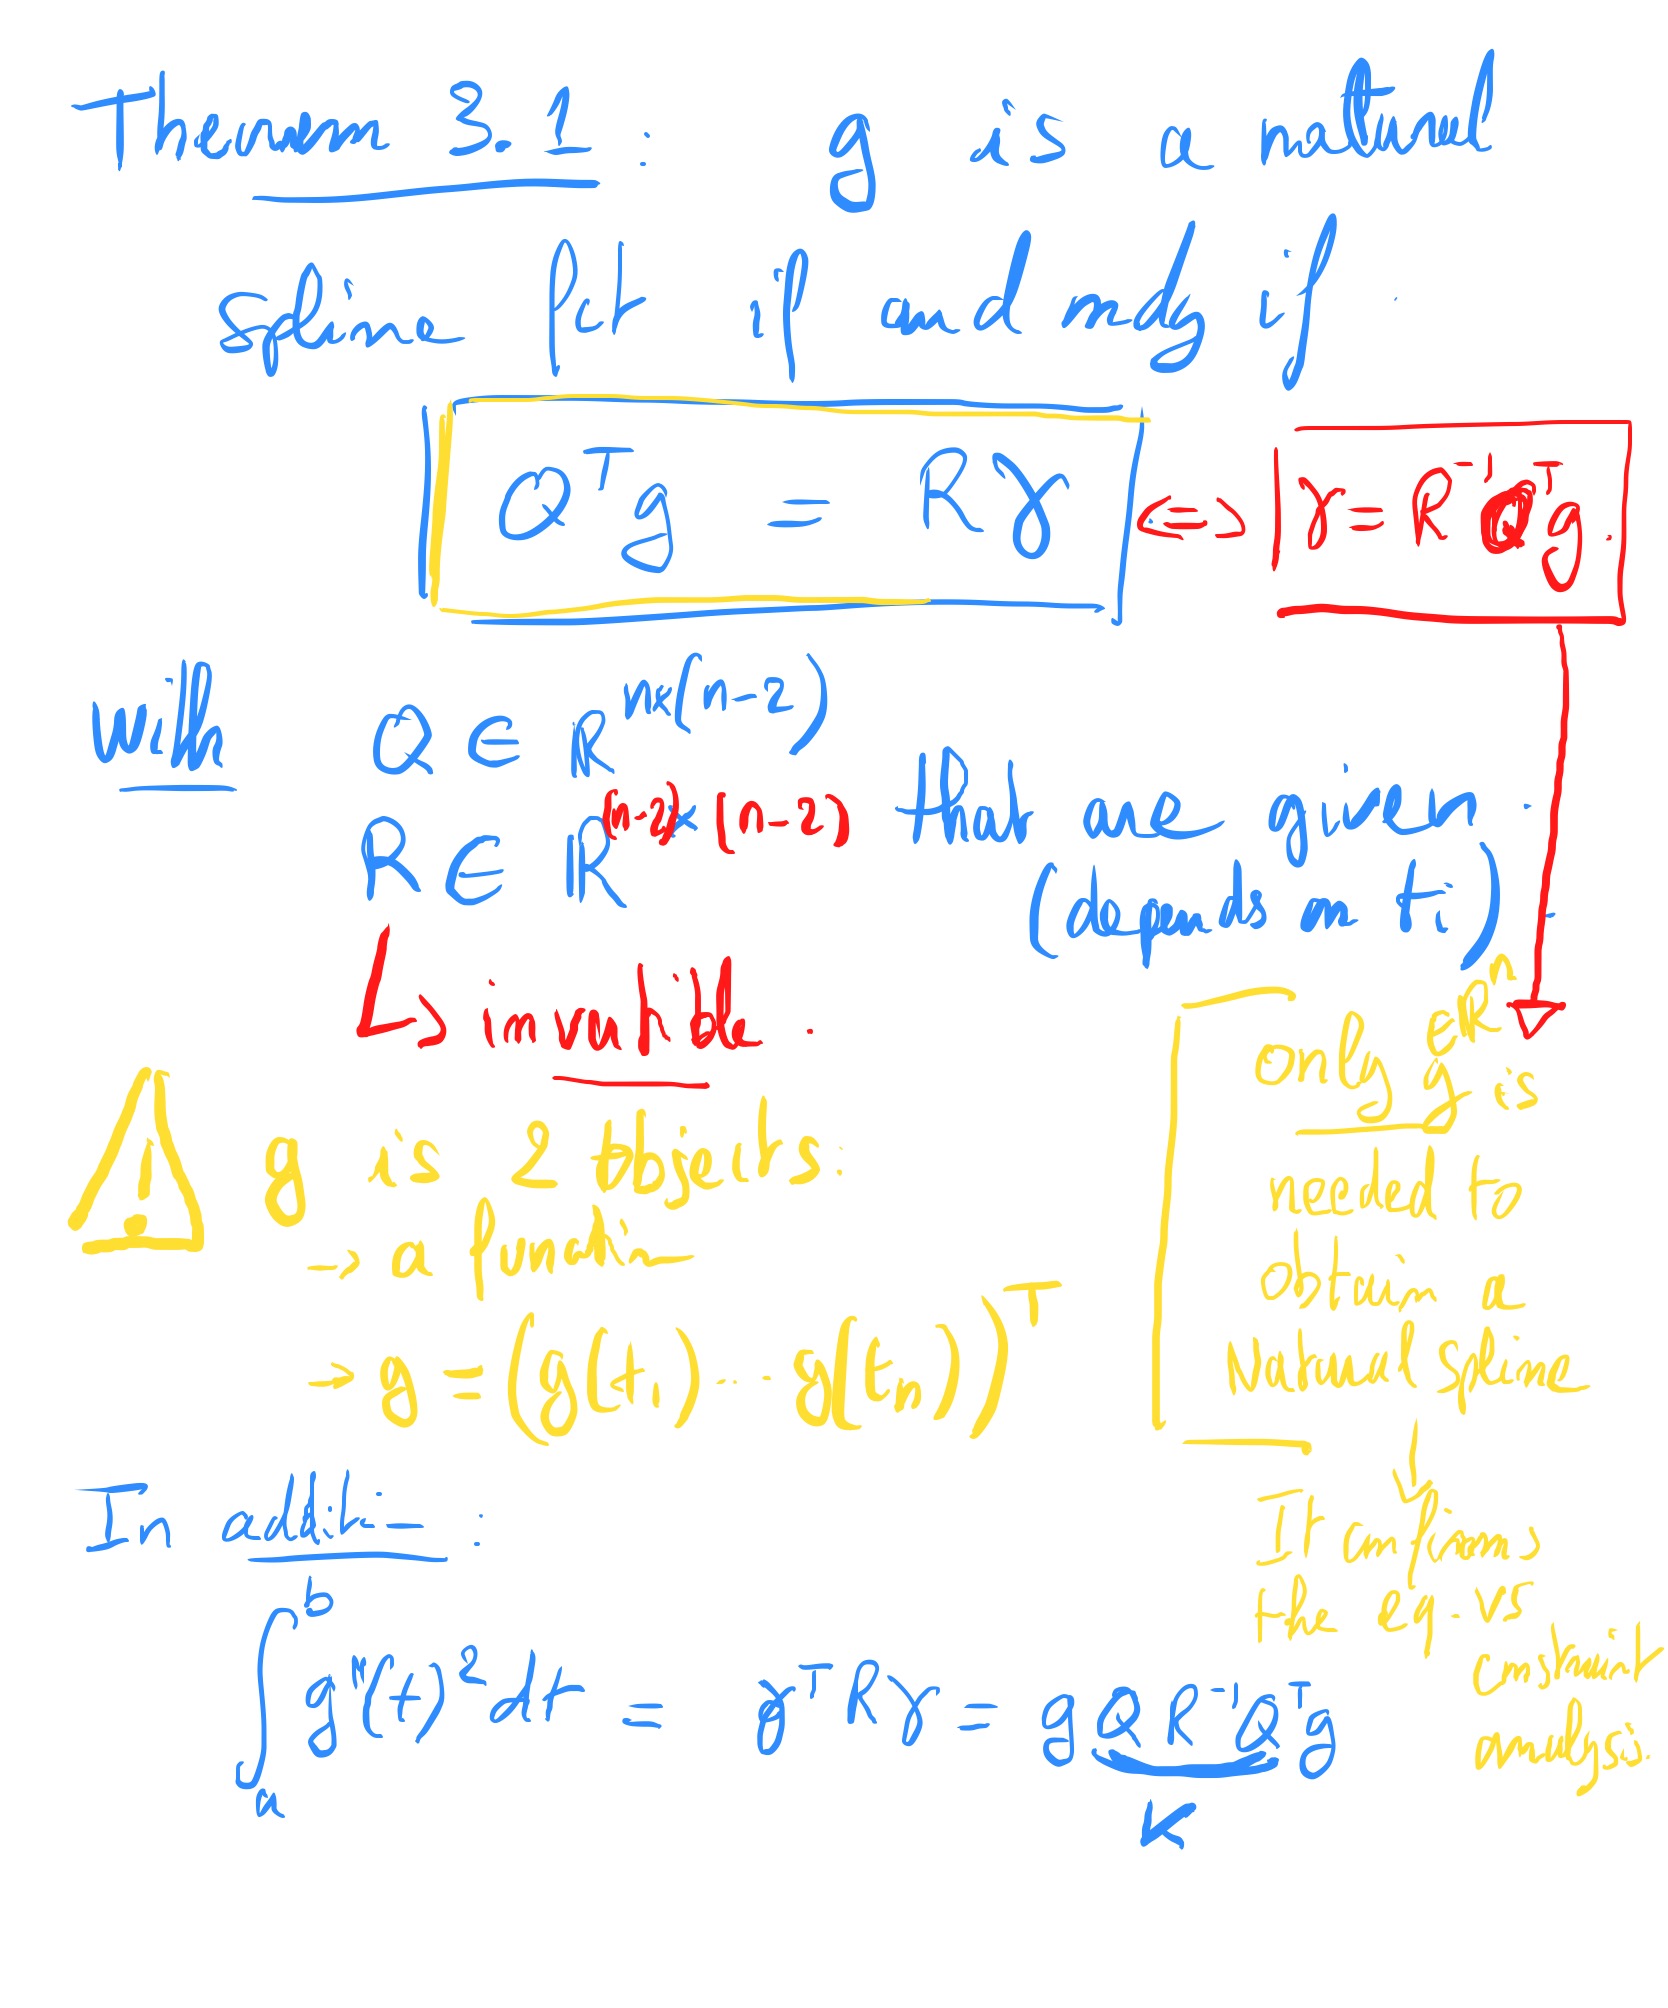 Theorem 3.1 : g is a natural
spline fit if and only if
Qᵀg = Rγ <=> γ = R⁻¹Qᵀg.
with Q ∈ ℝⁿˣ⁽ⁿ⁻²⁾
R ∈ ℝ⁽ⁿ⁻²⁾ˣ⁽ⁿ⁻²⁾ that are given.
(depends on ti)
↳ invertible.
g is 2 objects:
→ a function
→ g = (g(t₁) ... g(tₙ))ᵀ
only g ∈ ℝⁿ is
needed to
obtain a
Natural Spline
↓
It confirms
the eq. vs
constraint
analysis.
In addition :
∫ₐᵇ g''(t)² dt = γᵀRγ = gQR⁻¹Qᵀg
K